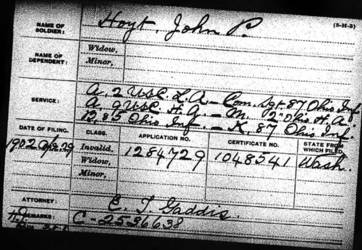 NAME OF SOLDIER: Hoyt, John P.
(3-313)
NAME OF DEPENDENT: Widow,
Minor,
SERVICE: A. 2 U.S.C. L.A. - Com. Sgt. 87 Ohio Inf.
A. 9 U.S.C. H.A. - M. 2" Ohio H.A.
85 Ohio Inf. - K. 87 Ohio Inf.
DATE OF FILING. CLASS. APPLICATION NO. CERTIFICATE NO. STATE FROM WHICH FILED.
1902 Invalid, 1284729 1048541 Wash.
Widow,
Minor,
ATTORNEY: E. T. Gaddis.
REMARKS: C-2536638